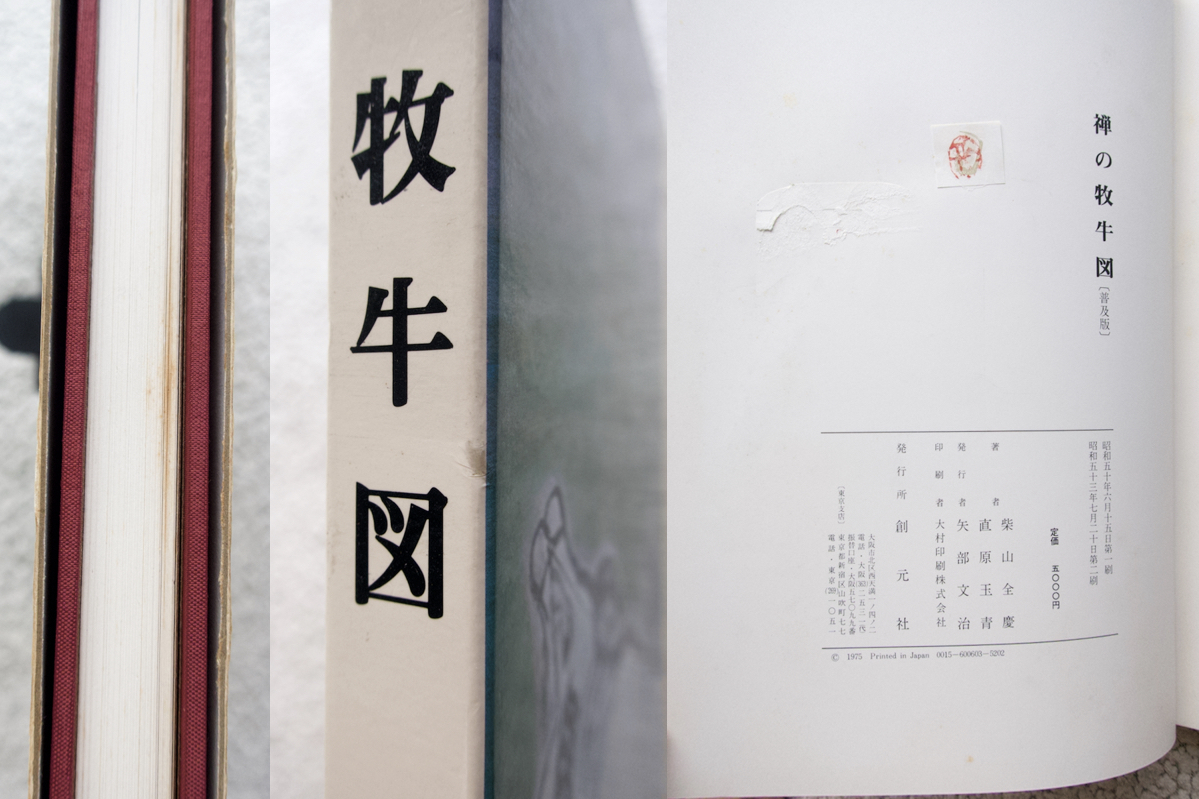 牧牛図
禅の牧牛図〔普及版〕
昭和五十年六月十五日第一刷
昭和五十三年七月二十日第二刷
定価 五〇〇〇円
著者 柴山全慶
直原玉青
発行者 矢部文治
印刷者 大村印刷株式会社
発行所 創元社
大阪市北区西天満一ノ四ノ二
振替口座・大阪五七〇九九番
〔東京支店〕
東京都新宿区山吹町七七
© 1975 Printed in Japan 0015―600603―5202